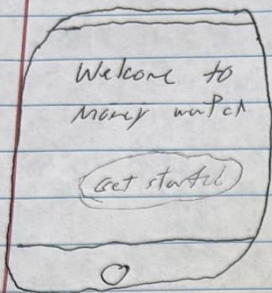 Welcome to
Money watch
Get started